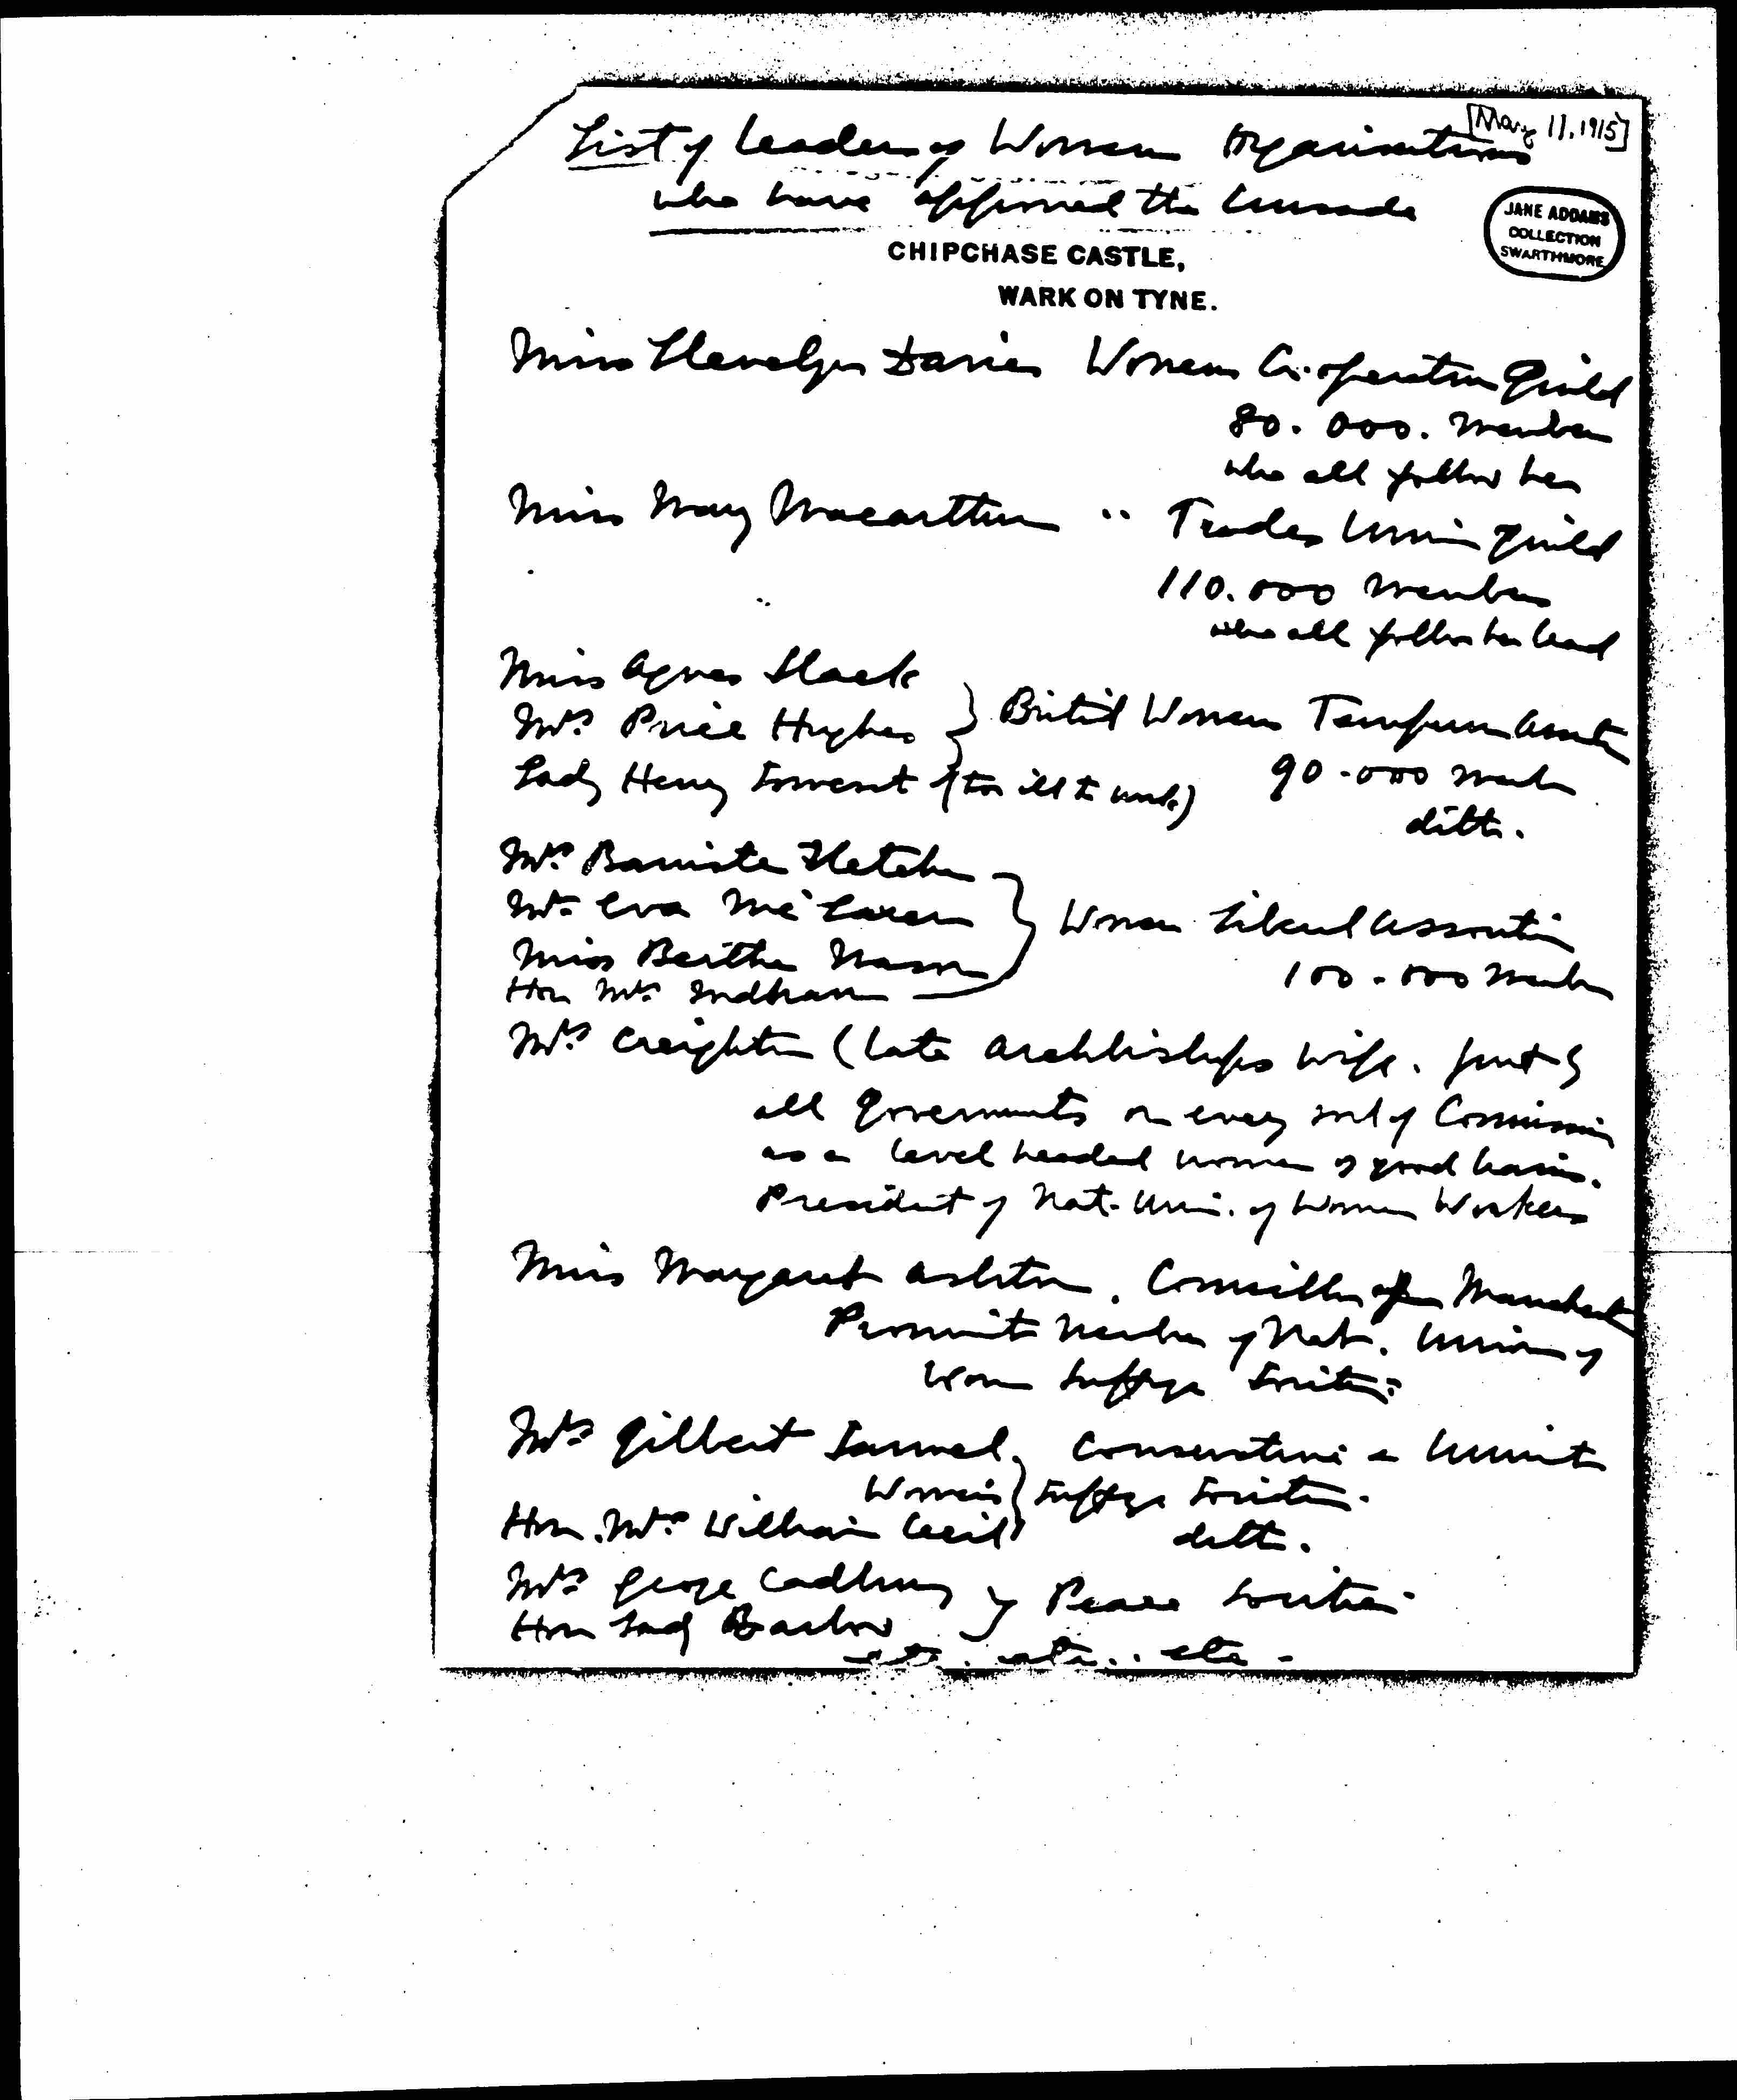 [May 11, 1915]
List of Leaders of Women Organisations
who have approved the Crusade
JANE ADDAMS
COLLECTION
SWARTHMORE
CHIPCHASE CASTLE,
WARK ON TYNE.
Miss Llewelyn Davies Womens Co.operative Guild
80.000. Members
who all follow her
Miss Mary Macarthur " Trades Union Guild
110.000 Members
who all follow her lead
Miss Agnes Slack
Mrs Price Hughes } British Womens Temperance
Lady Henry Somerset (too ill to work) 90.000 Memb
ditto.
Mrs Bannister Fletcher
Mrs Eva McLaren } Women Liberal Association
Miss Bertha Mason
Hon Mrs 100.000 Members
Mrs Creighton (late Archbishops wife. put by
all Governments on every sort of Commission
as a level headed woman of good brain.
President of Nat. Union. of Women Workers
Miss Margaret Ashton. Councillor of Manchest
Prominent Member of Nat. Union of
Women Suffrage Societies
Mrs Gilbert Samuel. Conservative & Unionist
Womens } Suffrage Societies.
Hon. Mrs William Cecil ditto.
Mrs George Cadbury } Peace Societies
Hon Lady Barlow
etc. etc.. etc -